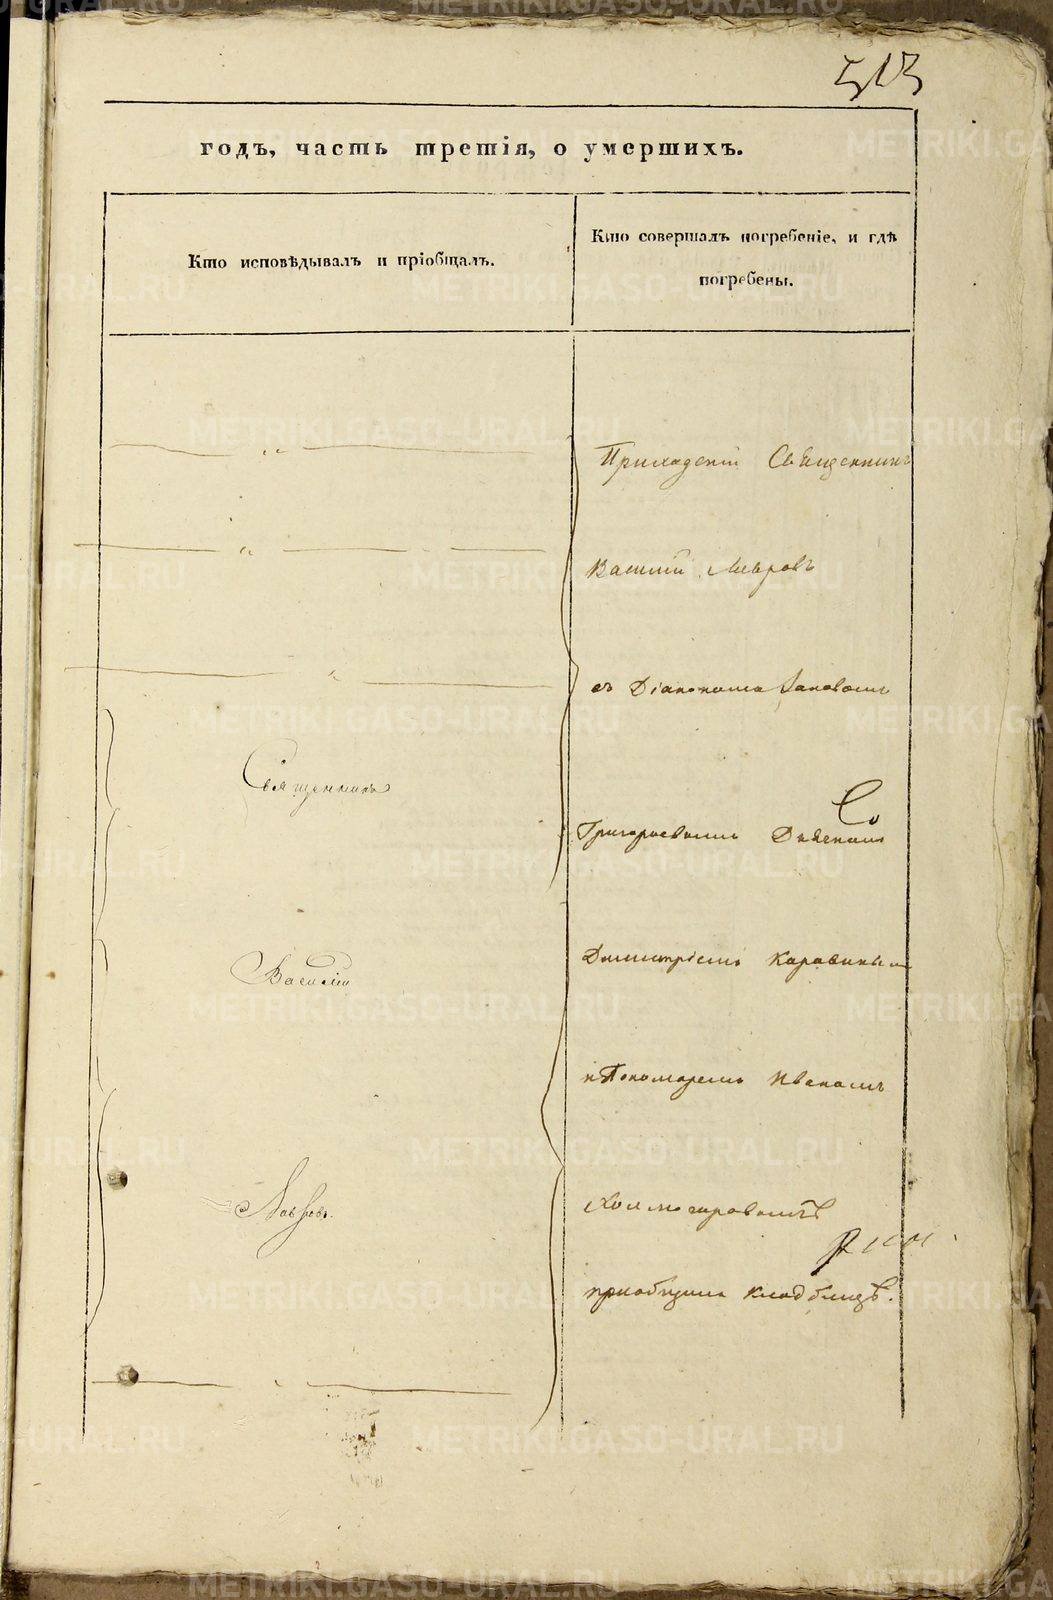 513
годъ, часть третія, о умершихъ.
Кто исповѣдывалъ и пріобщалъ.
Кто совершалъ погребеніе, и гдѣ
погребены.
Приходскій Священникъ
Василій Лавровъ
съ Діакономъ Іаковомъ
Священникъ
Григорьевымъ Дьячкомъ
Василій
Димитріемъ
и Пономаремъ Иваномъ
Лавровъ
Холмогоровымъ
кладбищѣ.
METRIKI.GASO-URAL.RU